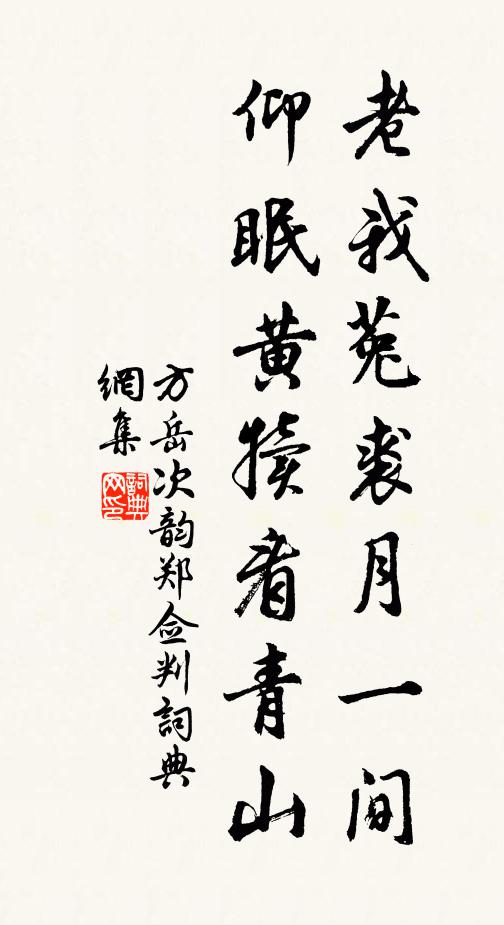 老我菟裘月一间
仰眠黄犊看青山
方岳次韵郑佥判詞典
網集
詞典
网印